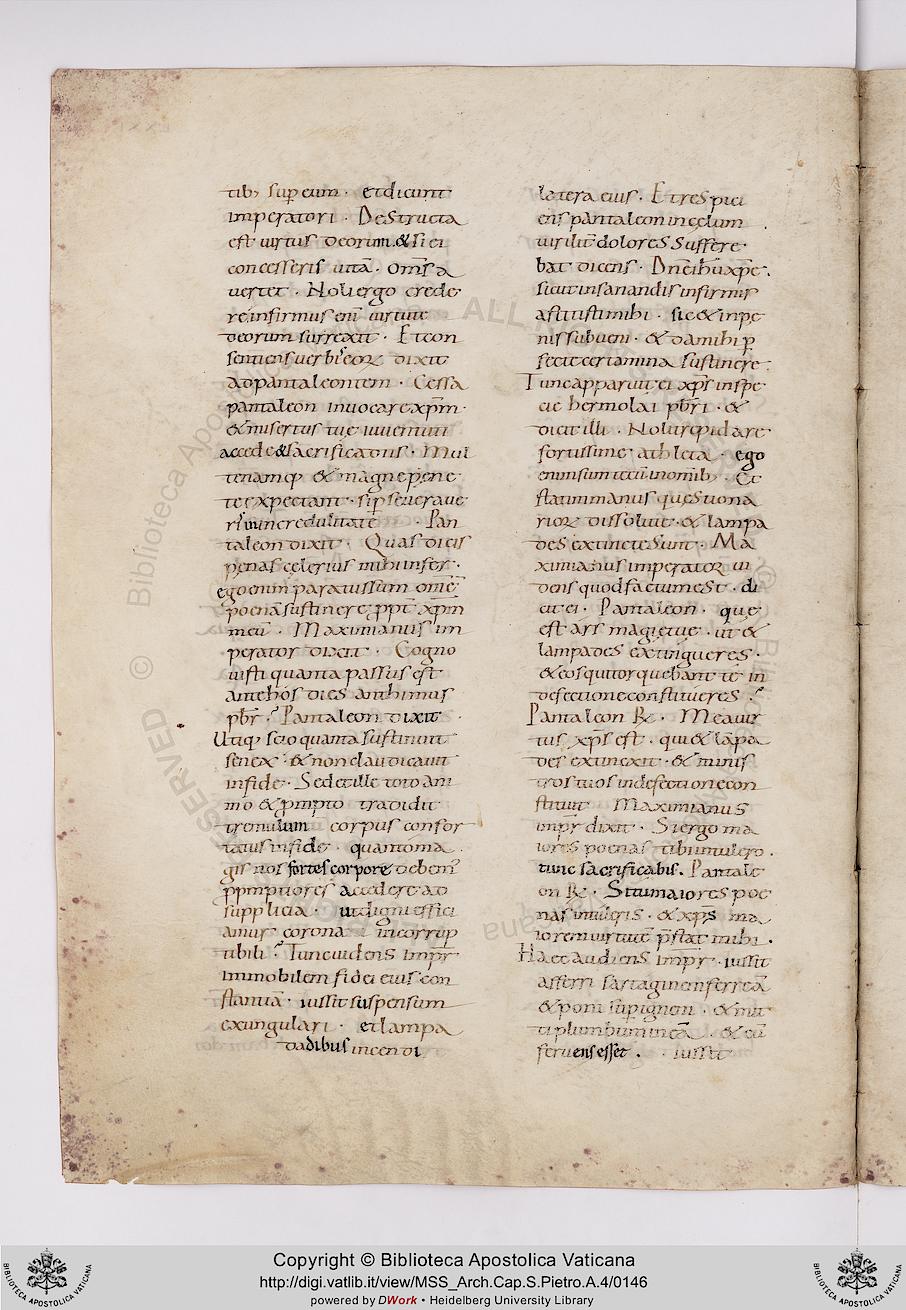 tib; sup̱ eum · et dicunt
imperatori · Destructa
est uirtus deorum · & si ei
concesseris uitā · om̄s a
uertet · Noli ergo crede
re infirmus eni uirtute
deorum surrexit · Et con
sentiens uerbis eoꝝ dixit
ad pantaleontem · Cessa
pantaleon inuocare xp̄m ·
& misertus tue iuuentuti
accede & sacrifica diis · Mul
te namq; & magne pene
te expectant · si p̱seueraue
ris in incredulitate · Pan
taleon dixit · Quas dicis
penas celerius mihi infer ·
ego enim paratus sum om̄e
poenā sustinere ꝓpt̄ xp̄m
meū · Maximianus im
perator dixit · Cogno
uisti quanta passus est
ante hos dies anthimus
pb̄r ? Pantaleon dixit ·
Utiq; scio quanta sustinuit
senex · & non claudicauit
in fide · Sed et ille toto ani
mo & ꝓmpto tradidit
tremulum corpus confor
tatus in fide · quanto ma
gis nos fortes corpore debem̄
ꝓmptiores accedere ad
supplicia · ut digni effici
amur corona incorrup
tibili ? Tunc uidens imp̄r
immobilem fidei eius con
stantiā · iussit suspensum
exungulari · et lampa
dadibus incendi
latera eius · Et respici
ens pantaleon in celum
uirilit̄ dolores suffere
bat dicens · Dn̄e ih̄u xp̄e ·
sicut in sanandis infirmis
astitisti mihi · sic & in pe
nis subueni · & da mihi p̱
fecte certamina sustinere :
Tunc apparuit ei xp̄s in spe
cie hermolai pb̄ri · &
dicit illi · Noli trepidare
fortissime athleta · ego
enim sum tecū in omib; · Et
statim manus questiona
rioꝝ dissoluit · & lampa
des extincte sunt · Ma
ximianus imperator ui
dens quod factum est · di
cit ei · Pantaleon · que
est ars magie tue · ut &
lampades extingueres ·
& eos qui torquebant te in
defectione constitueres ?
Pantaleon R̄ · Mea uir
tus xp̄s est · qui & lāpa
des extinxit · & minis
tros tuos in defectione con
stituit · Maximianus
imp̄r dixit · Si ergo ma
iores poenas tibi intulero ·
tunc sacrificabis · Pantale
on R̄ · Si tu maiores poe
nas intuleris · & xp̄s ma
iorem uirtutē p̄stat mihi ·
Haec audiens imp̄r · iussit
afferri sartaginem ferreā
& poni sup̱ ignem · & mit
ti plumbum in eā · & cū
feruens esset · · iussit
Copyright © Biblioteca Apostolica Vaticana
http://digi.vatlib.it/view/MSS_Arch.Cap.S.Pietro.A.4/0146
powered by DWork • Heidelberg University Library